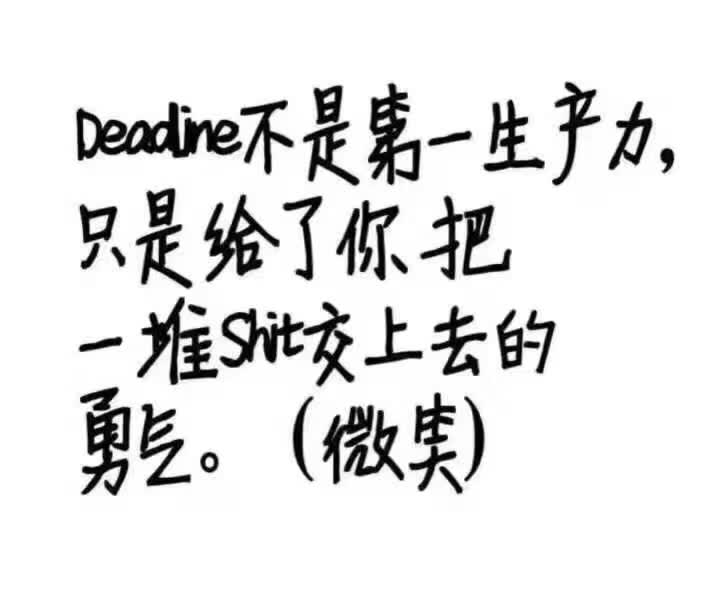 Deadline不是第一生产力,
只是给了你把
一堆Shit交上去的
勇气。（微笑）